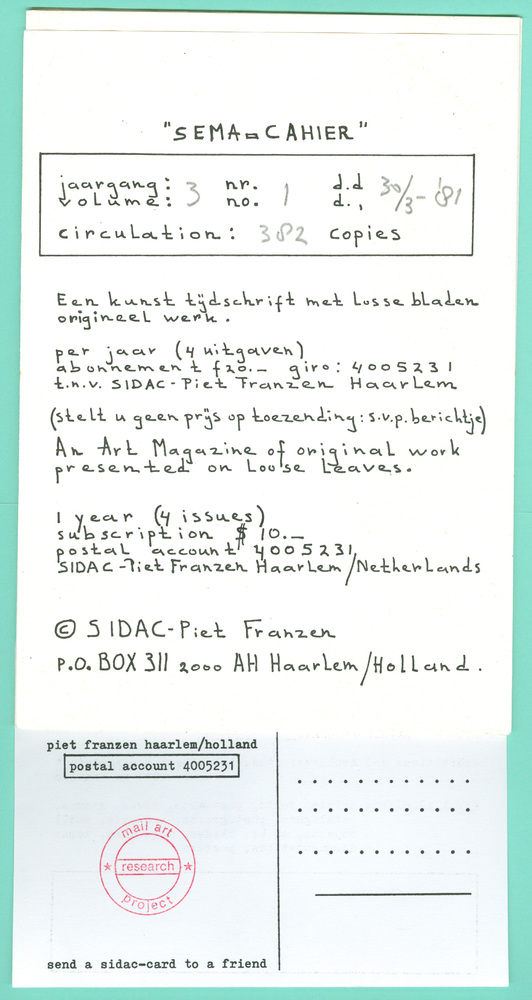 "SEMA-CAHIER"
jaargang: 3 nr. 1 d.d 30/3-'81
volume: no. d.,
circulation: 382 copies
Een kunst tijdschrift met losse bladen
origineel werk.
per jaar (4 uitgaven)
abonnement f20.- giro: 4005231
t.n.v. SIDAC-Piet Franzen Haarlem
(stelt u geen prijs op toezending: s.v.p. berichtje)
An Art Magazine of original work
presented on Loose Leaves.
1 year (4 issues)
subscription $ 10.-
postal account 4005231
SIDAC-Piet Franzen Haarlem/Netherlands
© SIDAC-Piet Franzen
P.O. BOX 311 2000 AH Haarlem/Holland.
piet franzen haarlem/holland
postal account 4005231
mail art
research
project
send a sidac-card to a friend